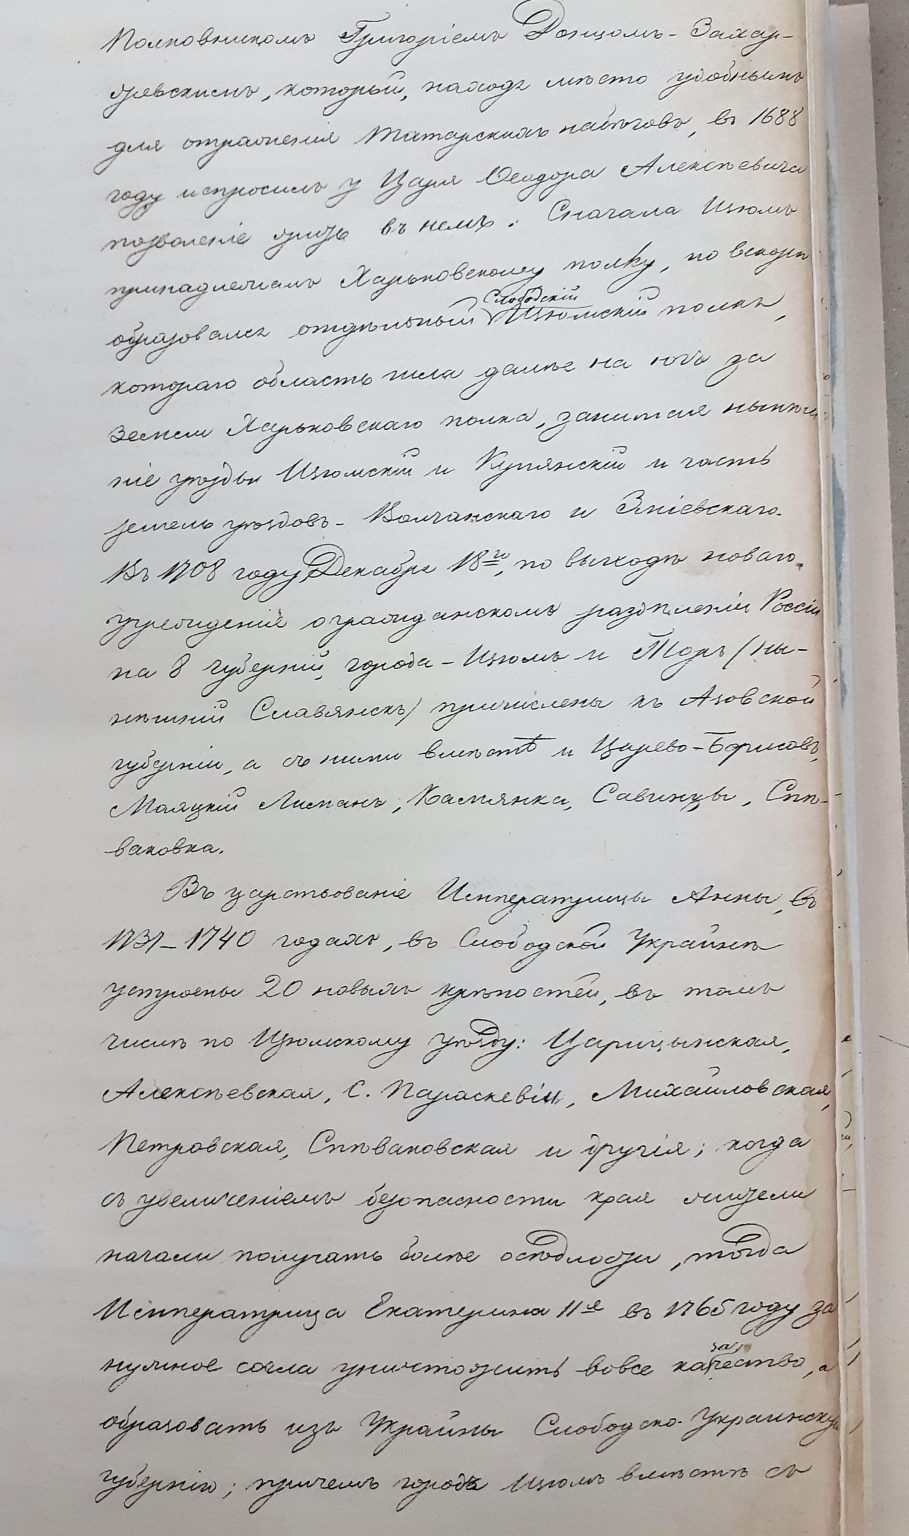 Полковникомъ Григоріемъ Донцомъ-Захар-
жевскимъ, который, находя мѣсто удобнымъ
для отраженія Татарскихъ набѣговъ, въ 1688
году испросилъ у Царя Ѳеодора Алексѣевича
позволеніе жить въ немъ. Сначала Изюмъ
принадлежалъ Харьковскому полку, но вскорѣ
образовался отдѣльный Слободскій Изюмскій полкъ,
котораго область шла далѣе на югъ за
земли Харьковскаго полка, занимая нынѣш
ніе уѣзды Изюмскій и Купянскій и часть
земель уѣздовъ- Волчанскаго и Зміевскаго.
Въ 1708 году Декабря 18го, по выходѣ новаго
учрежденія о гражданскомъ раздѣленіи Россіи
на 8 губерній, города - Изюмъ и Торъ /ны-
нѣшній Славянскъ/ причислены къ Азовской
губерніи, а съ ними вмѣстѣ и Царево-Борисовъ,
Маяцкій Лиманъ, Камянка, Савинцы, Спѣ-
ваковка.
Въ царствованіе Императрицы Анны, въ
1731-1740 годахъ, въ Слободской Украинѣ
устроены 20 новыхъ крѣпостей, въ томъ
числѣ по Изюмскому уѣзду: Царицынская,
Алексѣевская, С. Параскевіи, Михайловская,
Петровская, Спѣваковская и другія; когда
съ увеличеніемъ безопасности края жители
начали получать болѣе осѣдлости, тогда
Императрица Екатерина II-я въ 1765 году за
нужное сочла уничтожить вовсе казачество, а
образовать изъ Украйны Слободско-Украинскую
губернію; причемъ городъ Изюмъ вмѣстѣ съ